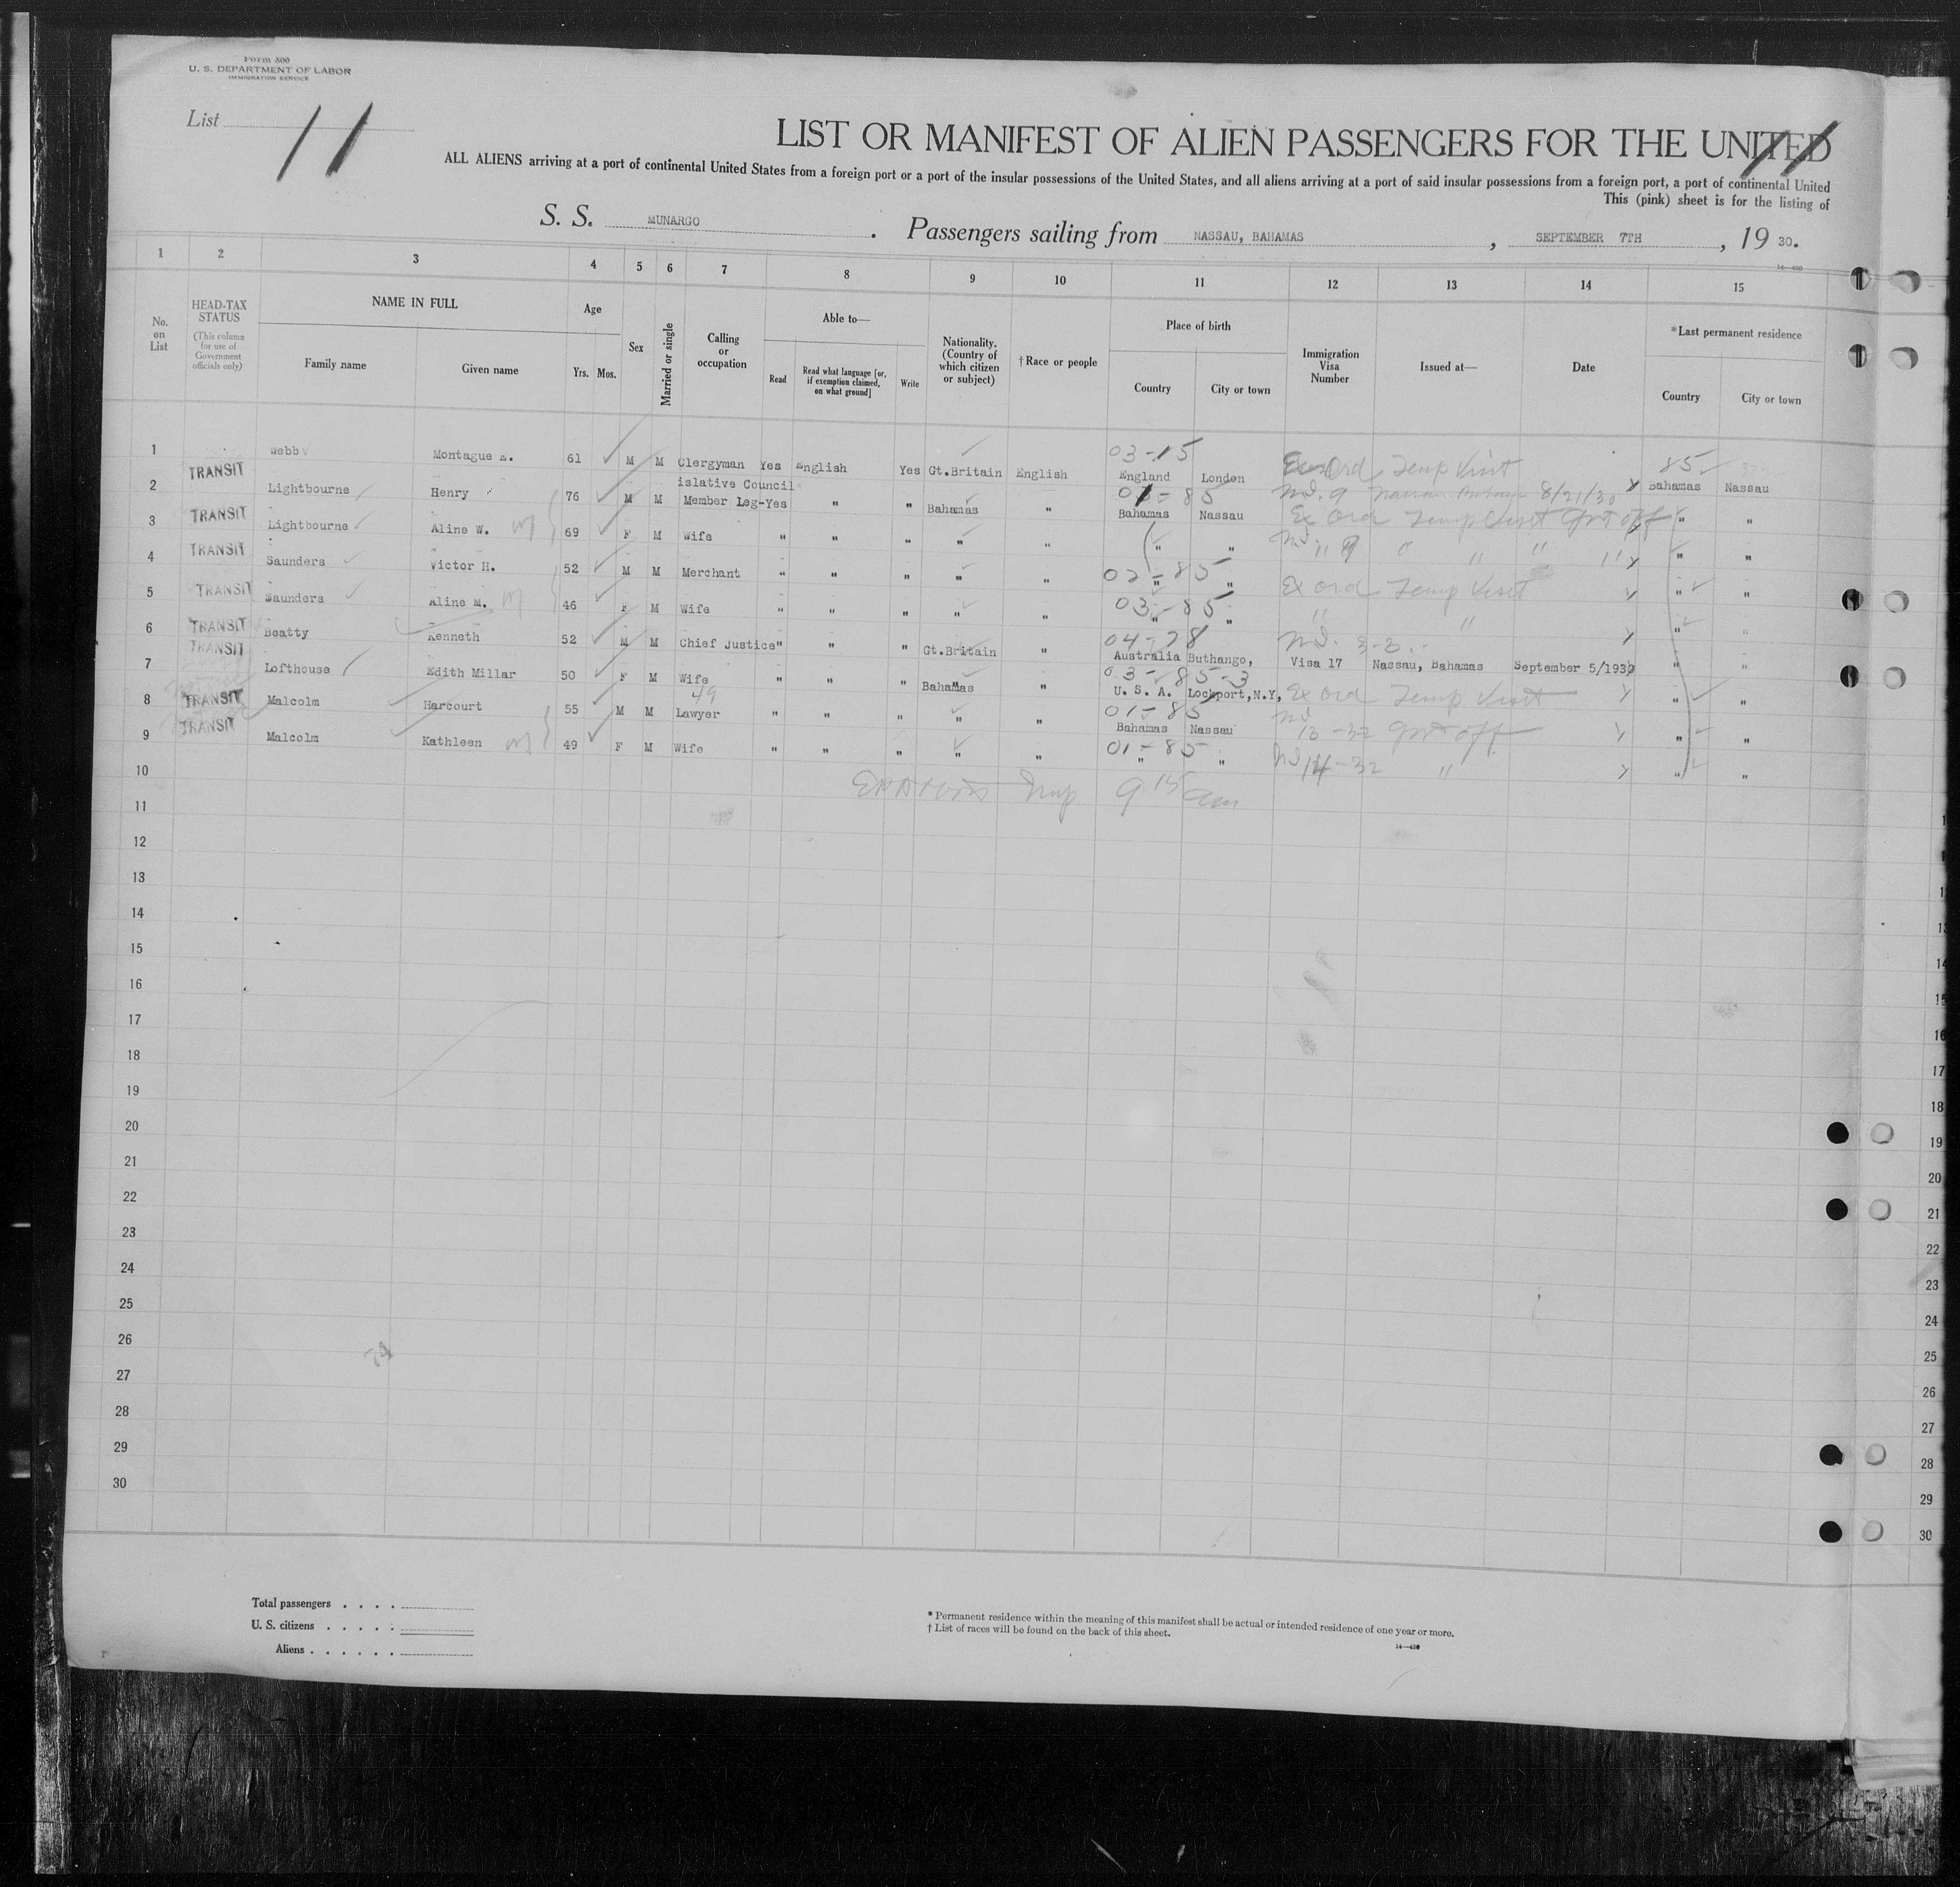 Form 500
U. S. DEPARTMENT OF LABOR
IMMIGRATION SERVICE
List 11
LIST OR MANIFEST OF ALIEN PASSENGERS FOR THE UNITED
ALL ALIENS arriving at a port of continental United States from a foreign port or a port of the insular possessions of the United States, and all aliens arriving at a port of said insular possessions from a foreign port, a port of continental United
This (pink) sheet is for the listing of
S. S. MUNARGO . Passengers sailing from NASSAU, BAHAMAS , SEPTEMBER 7TH , 19 30.
1 2 3 4 5 6 7 8 9 10 11 12 13 14 15
No. on List
HEAD-TAX STATUS
(This column for use of Government officials only)
NAME IN FULL
Family name
Given name
Age
Yrs. Mos.
Sex
Married or single
Calling or occupation
Able to—
Read
Read what language [or, if exemption claimed, on what ground]
Write
Nationality. (Country of which citizen or subject)
†Race or people
Place of birth
Country
City or town
Immigration Visa Number
Issued at—
Date
*Last permanent residence
Country
City or town
03-15
1 TRANSIT Webb Montague 61 M M Clergyman Yes English Yes Gt.Britain English England London Ex Ord Temp Visit 85 Bahamas Nassau
2 TRANSIT Lightbourne Henry 76 M M Member Leg-islative Council Yes " " Bahamas " 01-85 Bahamas Nassau 9 8/21/30 " "
3 TRANSIT Lightbourne Aline W. 69 F M Wife " " " " " " " " "
4 TRANSIT Saunders Victor H. 52 M M Merchant " " " " " 02-85 " " Ex Ord Temp Visit " "
5 TRANSIT Saunders Aline M. 46 F M Wife " " " " " 03-85 " " " " " "
6 TRANSIT Beatty Kenneth 52 M M Chief Justice " " " Gt.Britain " 04-28 Australia Buthango, Visa 17 Nassau, Bahamas September 5/1930 " "
7 TRANSIT Lofthouse Edith Millar 50 F M Wife " " " Bahamas " 03-85-3 U. S. A. Lockport,N.Y, Ex Ord Temp Visit " "
8 TRANSIT Malcolm Harcourt 55 M M 49 Lawyer " " " " " 01-85 Bahamas Nassau 13-32 " "
9 TRANSIT Malcolm Kathleen 49 F M Wife " " " " " 01-85 " " 14-32 " " "
10 9 15 am
11
12
13
14
15
16
17
18
19
20
21
22
23
24
25
26
27
28
29
30
Total passengers . . . .
U. S. citizens . . . . .
Aliens . . . . . .
* Permanent residence within the meaning of this manifest shall be actual or intended residence of one year or more.
† List of races will be found on the back of this sheet.
14—430